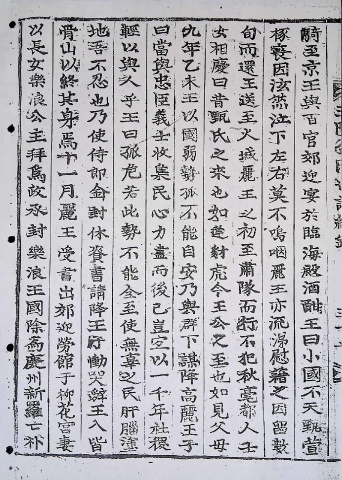 騎至京王與百官郊迎宴於臨海殿酒酣王曰小國不天甄萱
椓喪因泫然泣下左右莫不嗚咽麗王亦流涕慰藉之因留數
旬而還王送至火城麗王之初至肅隊而行不犯秋毫都人士
女相慶曰昔甄氏之來也如逢豺虎今王公之至也如見父母
九年乙未王以國弱勢孤不能自安乃與群下謀降高麗王子
曰當與忠臣義士收合民心力盡而後已豈宜以一千年社稷
輕以與人乎王曰孤危若此勢不能全至使無辜之民肝腦塗
地吾不忍也乃使侍郎金封休賚書請降王子慟哭辭王入皆
骨山以終其身焉十一月麗王受書出郊迎勞館于柳花宮妻
以長女樂浪公主拜爲政承封樂浪王國除爲慶州新羅亡朴